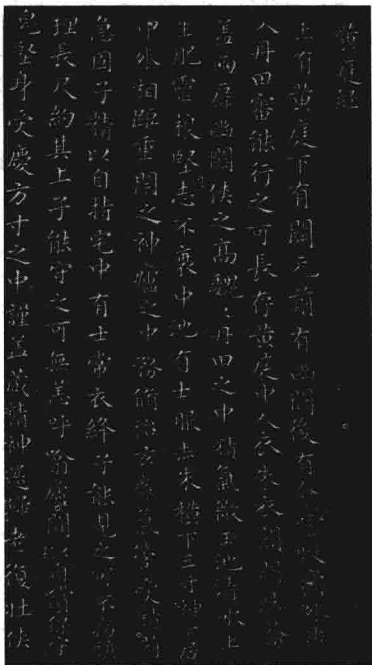 黄庭經
上有黄庭下有關元前有幽闕後有命
入丹田審能行之可長存黄庭中人衣朱衣關
蓋兩扉幽闕俠之高魏魏丹田之中精氣微玉池清水上
生肥靈根堅志不衰中池有士服赤朱横下三寸神所居
中外相距重閉之神廬之中務脩治玄
急固子精以自持宅中有士常衣絳子能見之可不病横
理長尺約其上子能守之可無恙呼噏廬間以自償保守
完堅身受慶方寸之中謹蓋藏精神還歸老復壯俠